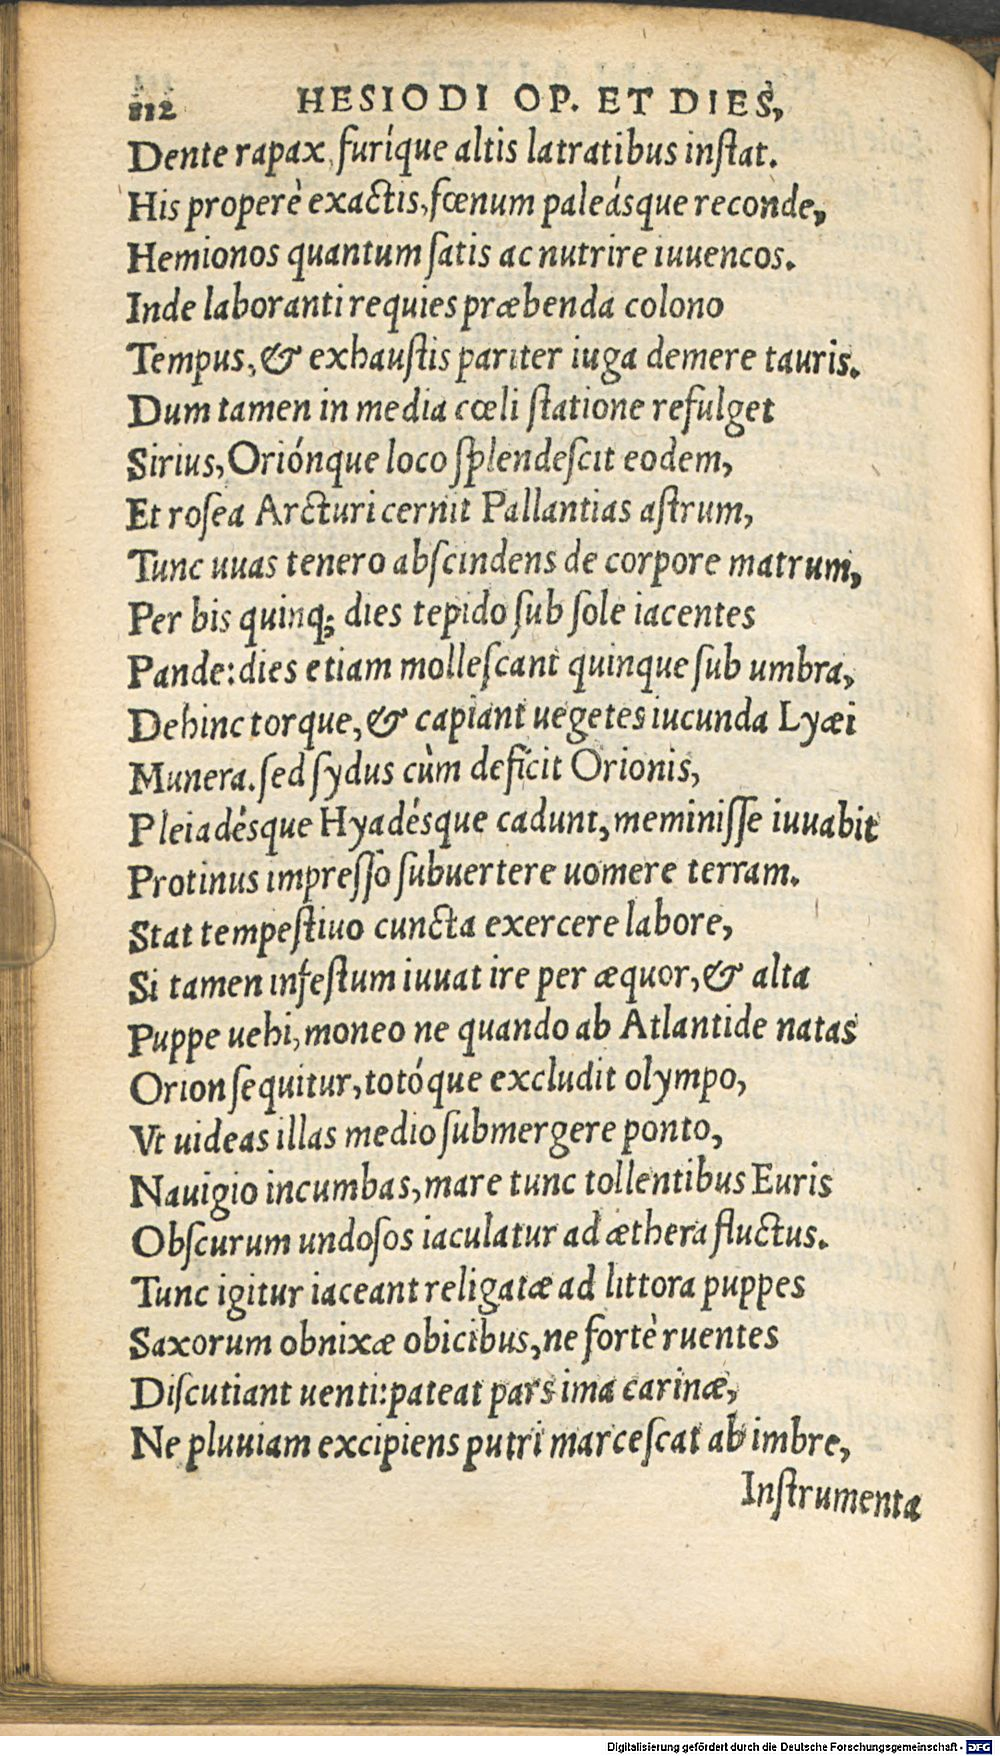 112 HESIODI OP. ET DIES,
Dente rapax, furíque altis latratibus inſtat.
His properè exactis, fœnum paleásque reconde,
Hemionos quantum ſatis ac nutrire iuuencos.
Inde laboranti requies præbenda colono
Tempus, & exhauſtis pariter iuga demere tauris.
Dum tamen in media cœli ſtatione refulget
Sirius, Oriónque loco ſplendeſcit eodem,
Et roſea Arcturi cernit Pallantias aſtrum,
Tunc uuas tenero abſcindens de corpore matrum,
Per bis quinq; dies tepido ſub ſole iacentes
Pande: dies etiam molleſcant quinque ſub umbra,
Dehinc torque, & capiant uegetes iucunda Lyæi
Munera. ſed ſydus cùm deficit Orionis,
Pleiadésque Hyadésque cadunt, meminiſſe iuuabit
Protinus impreſſo ſubuertere uomere terram.
Stat tempeſtiuo cuncta exercere labore,
Si tamen infeſtum iuuat ire per æquor, & alta
Puppe uehi, moneo ne quando ab Atlantide natas
Orion ſequitur, totóque excludit olympo,
Vt uideas illas medio ſubmergere ponto,
Nauigio incumbas, mare tunc tollentibus Euris
Obſcurum undoſos iaculatur ad æthera fluctus.
Tunc igitur iaceant religatæ ad littora puppes
Saxorum obnixæ obicibus, ne fortè ruentes
Diſcutiant uenti: pateat pars ima carinæ,
Ne pluuiam excipiens putri marceſcat ab imbre,
Inſtrumenta
Digitalisierung gefördert durch die Deutsche Forschungsgemeinschaft - DFG